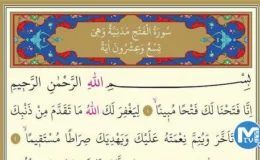 سُورَةُ الْفَتْحِ مَدَنِيَّةٌ وَهِيَ
تِسْعٌ وَعِشْرُونَ اٰيَةً
بِسْمِ اللّٰهِ الرَّحْمٰنِ الرَّحِيمِ
اِنَّا فَتَحْنَا لَكَ فَتْحًا مُبِينًا ﴿١﴾ لِيَغْفِرَ لَكَ اللّٰهُ مَا تَقَدَّمَ مِنْ ذَنْبِكَ
وَمَا تَاَخَّرَ وَيُتِمَّ نِعْمَتَهُ عَلَيْكَ وَيَهْدِيَكَ صِرَاطًا مُسْتَقِيمًا ﴿٢﴾
M
TV